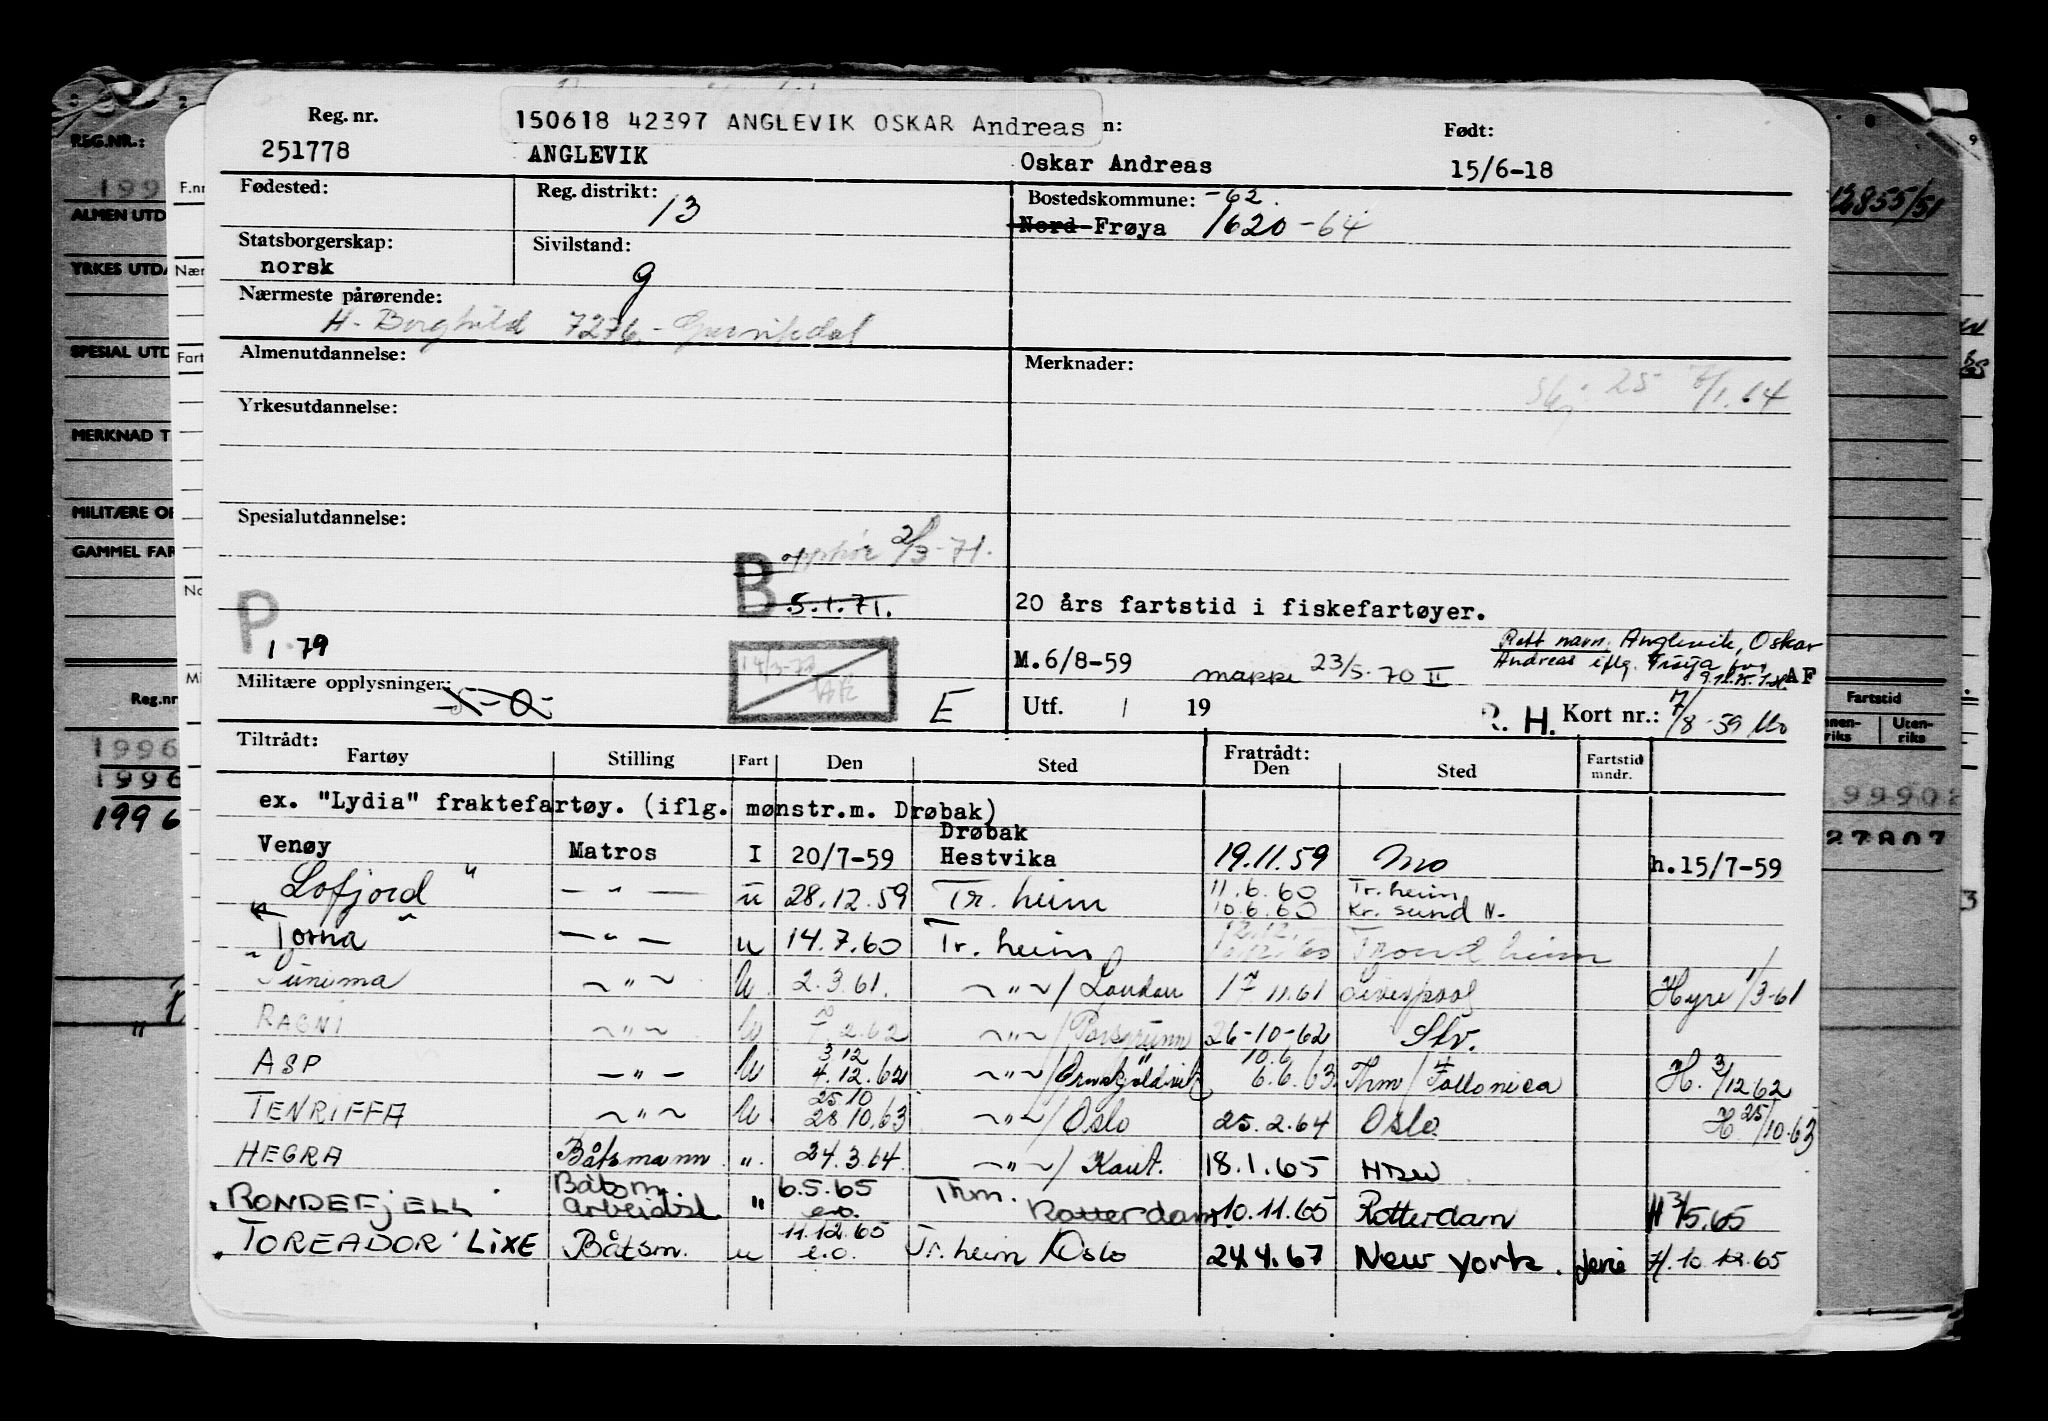 Reg. nr.
150618 42397 ANGLEVIK OSKAR Andreas n:
Født:
251778 ANGLEVIK Oskar Andreas 15/6-18
Fødested: Reg. distrikt: 13 Bostedskommune: -62.
Nord-Frøya 1620 -64
Statsborgerskap: norsk Sivilstand: g
Nærmeste pårørende:
H- Borghild 7276
Almenutdannelse: Merknader:
25 7/1.64
Yrkesutdannelse:
Spesialutdannelse:
opphør 2/3-71.
B 5.1.71.
20 års fartstid i fiskefartøyer.
P 1.79
Rett navn. Anglevik, Oskar
Andreas iflg. Frøya
M.6/8-59 mappe 23/5.70 II AF
Militære opplysninger: E
Utf. / 19 R. H. Kort nr.: 7/8-59
Tiltrådt: Fratrådt:
Fartøy Stilling Fart Den Sted Den Sted Fartstid mndr.
ex. "Lydia" fraktefartøy. (iflg. mønstr.m. Drøbak)
Drøbak
Venøy Matros I 20/7-59 Hestvika 19.11.59 Mo h.15/7-59
Lofjord — " — u 28.12.59 Tr. heim 11.6.60 Tr. heim
10.6.60 Kr. sund N-
Torna — " — u 14.7.60 Tr. heim 12.60 Trondheim
Sunima ~ " ~ u 2.3.61. ~ " ~ / London 11.61 Liverpool Hyre 1/3-61
RAGNI ~ " ~ u 2.62 ~ " ~ / Porsgrunn 26-10-62 Stv.
ASP — " — u 3 12 4.12.62 ~ " ~ / Ørnskjöldvik 10.6 6.6.63. Thm / Follonica H. 3/12 62
TENRIFFA ~ " ~ u 25 10 28 10.63 ~ " ~ / Oslo 25.2.64 Oslo H 25/10.63
HEGRA Båtsmann " 24.3.64 ~ " ~ / 18.1.65
"RONDEFJELL" Båtsm. arbeidsl " 6.5.65 e.o. Thm. Rotterdam 10.11.65 Rotterdam H 3/5.65
"TOREADOR" LIXE Båtsm. u 11.12.65 e.o. Tr. heim / Oslo 24.4.67 New York. H. 10. 12.65
REG.NR.:
199
ALMEN UTD
YRKES UTDA
SPESIAL UTD
MERKNAD T
MILITÆRE OP
GAMMEL FAR
Reg.nr
1996
1996
1996
F.nr
Nær
Fart
12855/51
Fartstid
Innen-riks Uten-riks
99902
27807